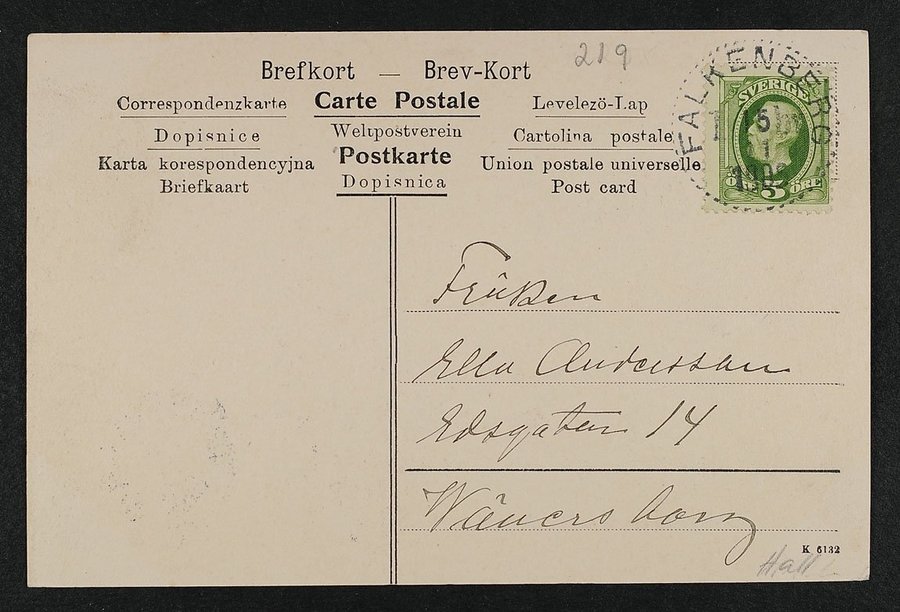 219
Brefkort — Brev-Kort
Correspondenzkarte Carte Postale Levelezö-Lap
Dopisnice Weltpostverein Cartolina postale
Karta korespondencyjna Postkarte Union postale universelle
Briefkaart Dopisnica Post card
FALKENBERG
SVERIGE
15
1
ÖRE 5 ÖRE
Fröken
Ella Andersson
Edsgatan 14
Wänersborg
K 6132
Hall